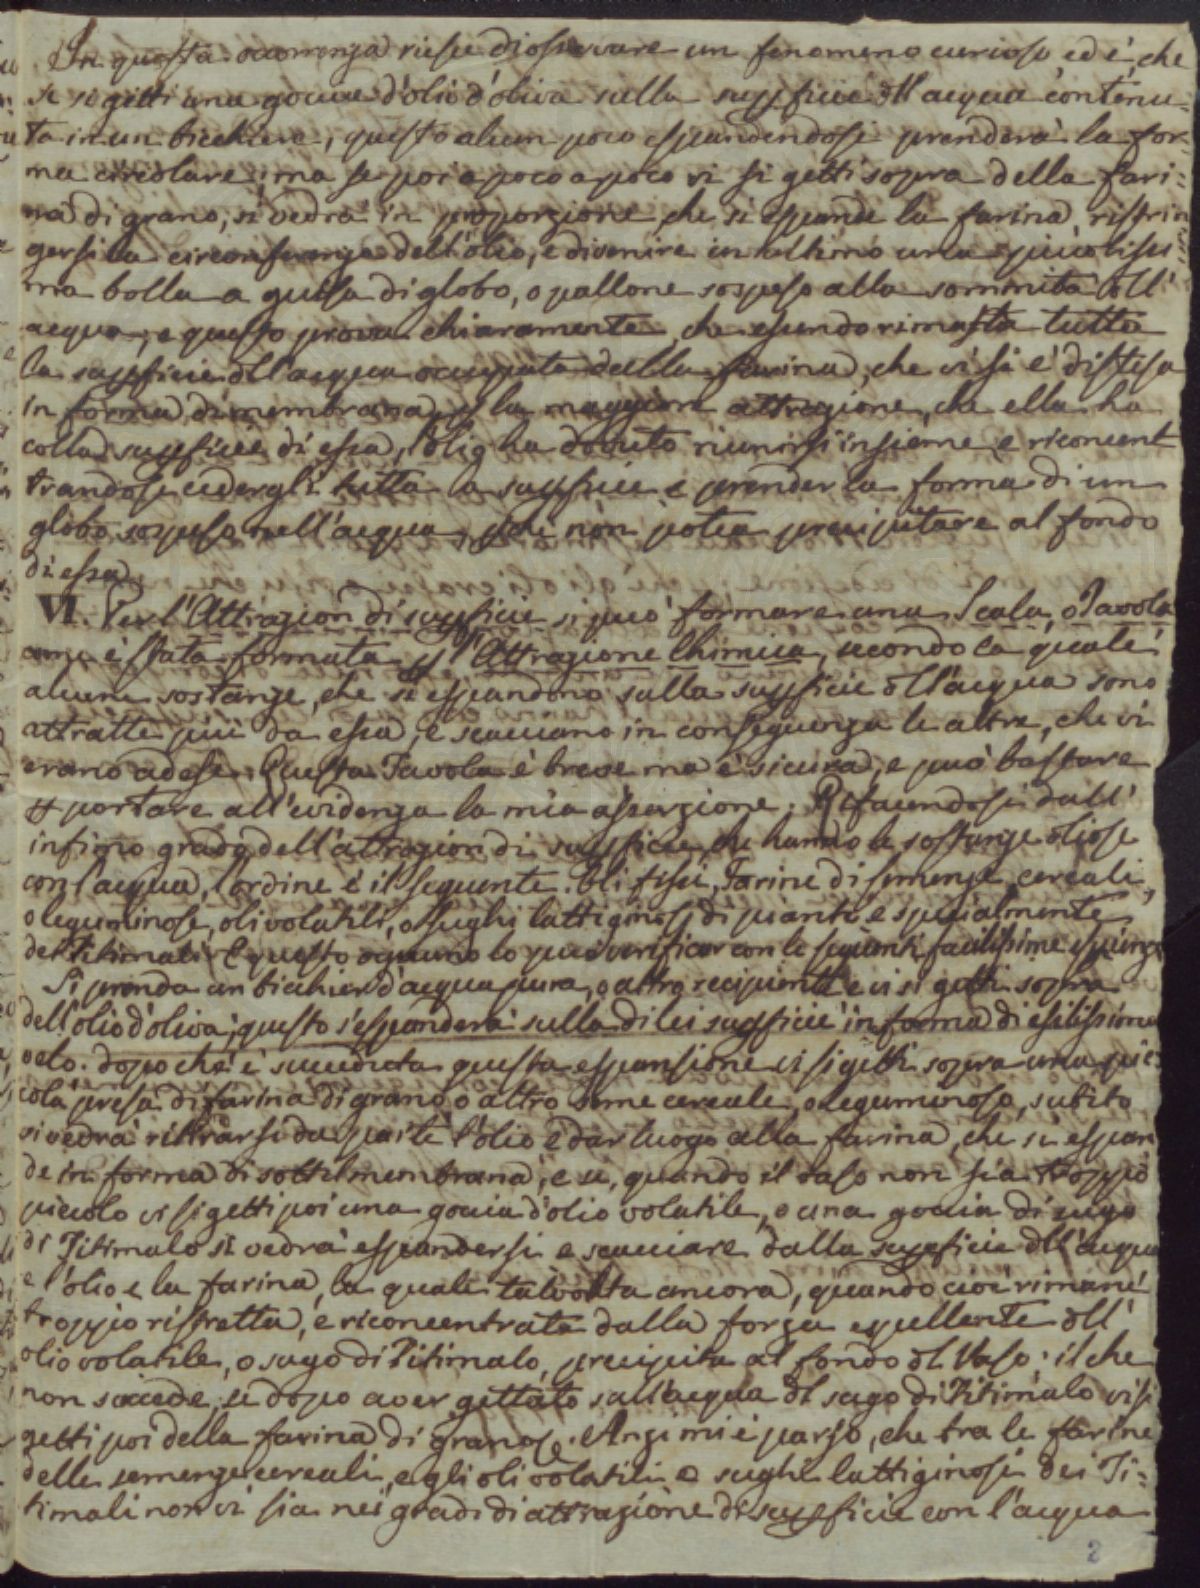 In questa occorrenza riesce di osservare un fenomeno curioso, ed è, che
se si getti una goccia d'olio d'oliva sulla supficie dll'acqua contenu-
ta in un bicchiere, questo alcun poco espandendosi prenderà la for-
ma circolare; ma se poi a poco a poco vi si getti sopra della fari-
na di grano, si vedrà in proporzione che si espande la farina ristrin
gersi la circonferenza dell'olio, e divenire in ultimo una piccolissi
ma bolla a guisa di globo, o pallone sospeso alla sommità dll'
acqua; e questo prova chiaramente, che essendo rimasta tutta
la supficie dll'acqua occupata dalla farina, che vi si è distesa
in forma di membrana, p la maggiore attrazione, che ella ha
colla supficie di essa, l'olio ha dovuto riunirsi insieme e riconcent
trandosi cedergli tutta la supficie e prender la forma di un
globo sospeso nell'acqua, pchè non potea precipitare al fondo
di essa.
VI. Per l'Attrazion di supficie si può formare una Scala, o Tavola
come è stata formata p l'Attrazione Chimica, secondo la quale
alcune sostanze, che si espandono sulla supficie dll'acqua sono
attratte più da essa, e scacciano in conseguenza le altre, che vi
erano adese. Questa Tavola è breve ma è sicura, e può bastare
p portare all'evidenza la mia asserzione. Rifacendosi dall'
infimo grado dell'attrazion di supficie, che hanno le sostanze oliose
con l'acqua, l'ordine è il seguente. Oli fissi, Farine di semenze cereali,
o leguminose, oli volatili, o sughi lattiginosi di piante e specialmente
dei Titimali. E questo ognuno lo può verificar con le seguenti facilissime esperienze
Si prenda un bicchier d'acqua pura, o altro recipiente e vi si getti sopra
dell'olio d'oliva; questo s'espanderà sulla di lei supficie in forma di esilissimo
velo. Dopo che è succeduta questa espansione vi si getti sopra una pic-
cola presa di farina di grano o altro seme cereale, o leguminoso, subito
si vedrà ritirarsi da parte l'olio e dar luogo alla farina, che si espan
de in forma di sottil membrana; e se, quando il vaso non sia troppo
piccolo vi si getti poi una goccia d'olio volatile, o una goccia di sugo
di Titimalo si vedrà espandersi e scacciare dalla supficie dll'acqua
e l'olio e la farina, la quale talvolta ancora, quando cioè rimane
troppo ristretta, e riconcentrata dalla forza espellente dll'
olio volatile, o sugo di Titimalo, precipita al fondo dl Vaso: il che
non succede, se dopo aver gettato sull'acqua dl sugo di Titimalo vi si
getti poi della farina di grano. Anzi mi è parso, che tra le farine
delle semenze cereali, e gli oli volatili e sughi lattiginosi dei Ti-
timali non vi sia nei gradi di attrazione di supficie con l'acqua
2